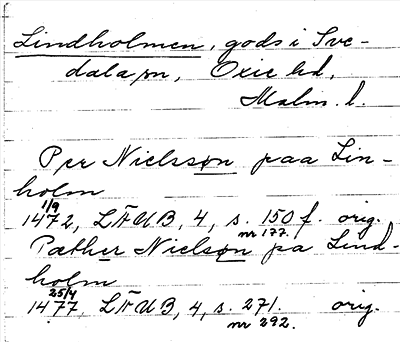 Lindholmen, gods i Sve-
dala sn, Oxie hd,
Malm. l.
Per Nielsson paa Lin-
holm
1/9
1472, LÄUB, 4, s. 150 f. orig.
nr 177.
Pæther Nielson pa Lind-
holm
25/4
1477, LÄUB, 4, s. 271. orig.
nr 292.